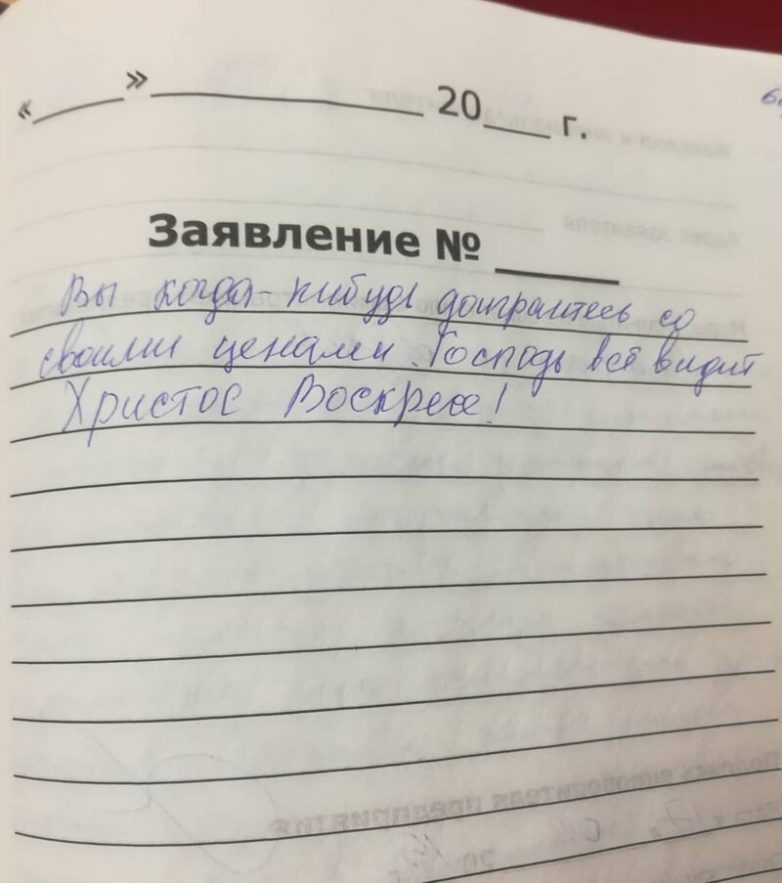 «____»______________ 20___ г.
Заявление № ______
Вы когда-нибудь доиграитесь со
своими ценами. Господь всё видит
Христос Воскресе!